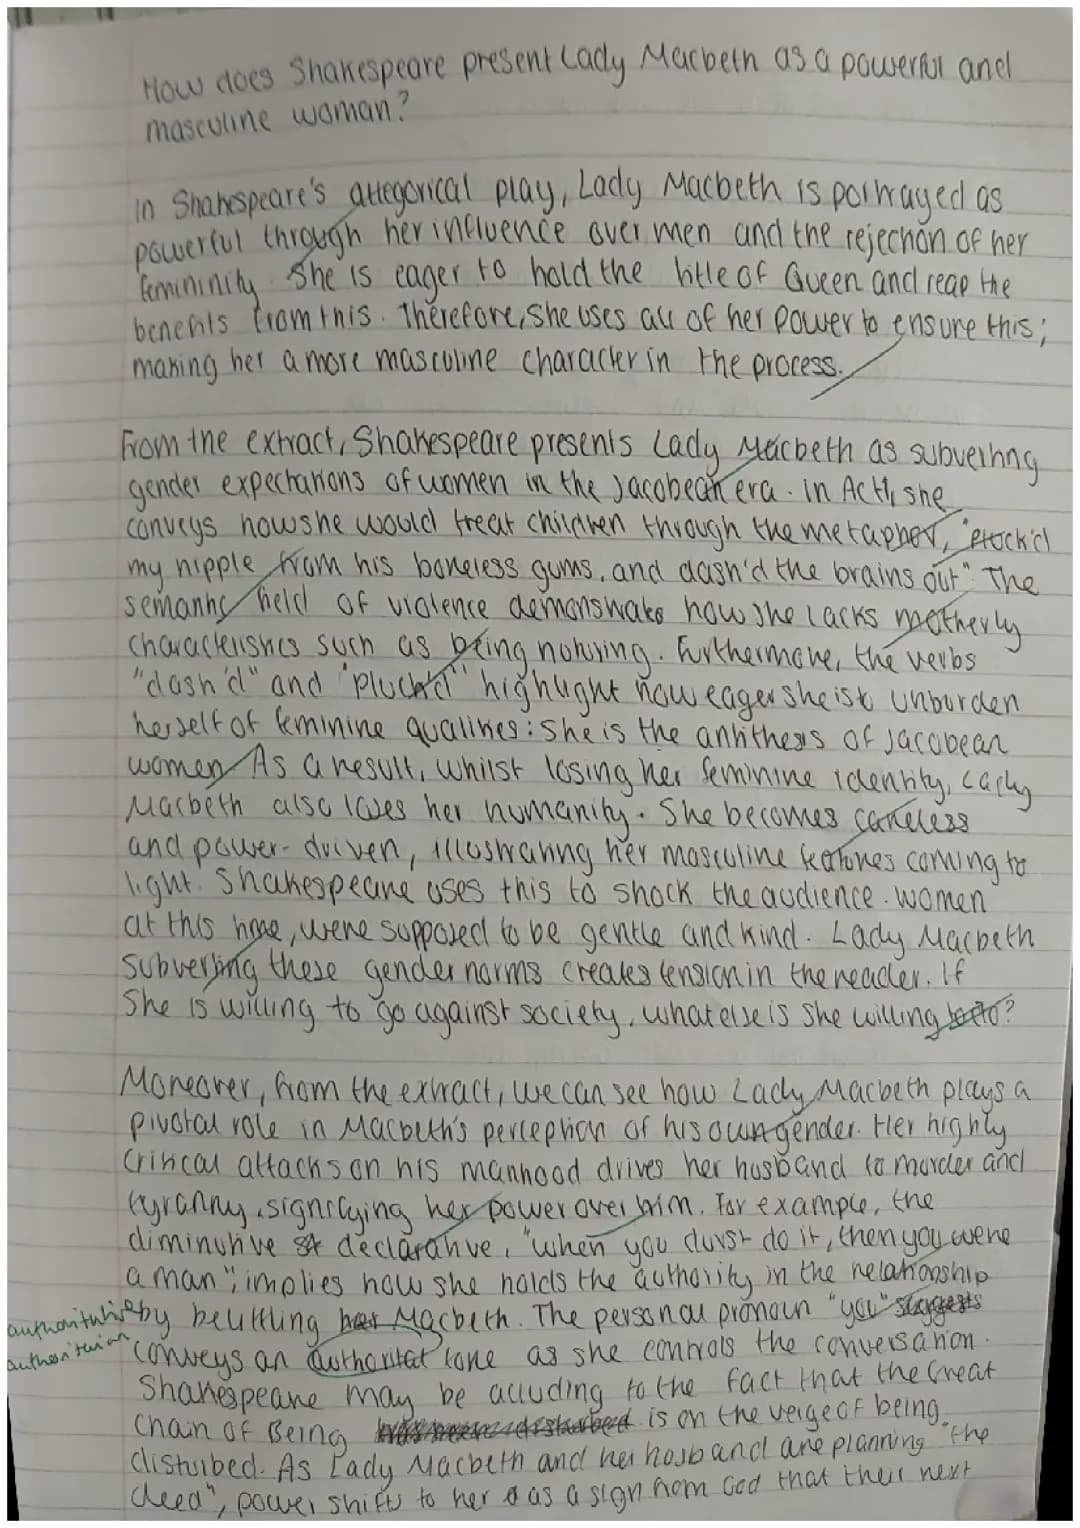 How does Shakespeare present Lady Macbeth as a powerful and
masculine woman?
In Shakespeare's allegorical play, Lady Macbeth is portrayed as
powerful through her influence over men and the rejection of her
femininity. She is eager to hold the title of Queen and reap the
benefits from this. Therefore, she uses all of her power to ensure this;
making her a more masculine character in the process.
From the extract, Shakespeare presents Lady Macbeth as subverting
gender expectations of women in the Jacobean era. In Act 1, she
conveys how she would treat children through the metaphor, "pluck'd
my nipple from his boneless gums, and dash'd the brains out". The
semantic field of violence demonstrates how she lacks motherly
characteristics such as being noturing. Furthermore, the verbs
"dash'd" and "pluck'd" highlight how eager she is to unburden
herself of feminine qualities: she is the antithesis of Jacobean
women. As a result, whilst losing her feminine identity, Lady
Macbeth also loses her humanity. She becomes careless
and power-driven, illustrating her masculine features coming to
light. Shakespeare uses this to shock the audience. Women
at this time, were supposed to be gentle and kind. Lady Macbeth
subverting these gender norms creates tension in the reader. If
she is willing to go against society, what else is she willing to do?
Moreover, from the extract, we can see how Lady Macbeth plays a
pivotal role in Macbeth's perception of his own gender. Her highly
critical attacks on his manhood drives her husband to murder and
tyranny, signifying her power over him. For example, the
diminutive declarative, "when you durst do it, then you were
a man", implies how she holds the authority in the relationship
by belittling her Macbeth. The personal pronoun "you" suggests
authoritative
authoritarian
conveys an authoritat tone as she controls the conversation.
Shakespeare may be alluding to the fact that the Great
Chain of Being is on the verge of being
disturbed. As Lady Macbeth and her husband are planning "the
deed", power shifts to her as a sign from God that their next